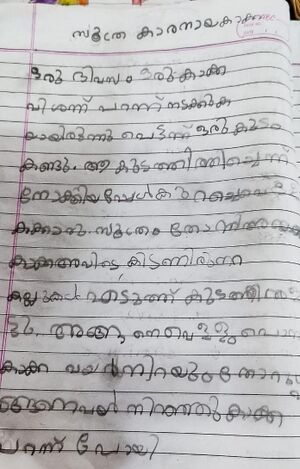 സൂത്ര കാരനായകാക്ക
ഒരു ദിവസം ഒരു കാക്ക
വിശന്ന് പറന്ന് നടക്കുക
യായിരുന്നു പെട്ടന്ന് ഒരു കുടം
കണ്ടു. ആ കുടത്തിൽ ചെന്ന്
നോക്കിയപ്പോൾ കുറച്ചെ
കാക്ക സൂത്രം തോന്നി
കാക്ക അവിടെ കിടന്നിരുന്ന
കല്ലുകൾ എടുത്ത് കുടത്തിൽ
ട്ടു. അങ്ങനെ വെള്ളം പൊ
കാക്ക വയർ നിറയും
അങ്ങനെ നിറഞ്ഞു കാക്ക
പറന്ന് പോയി